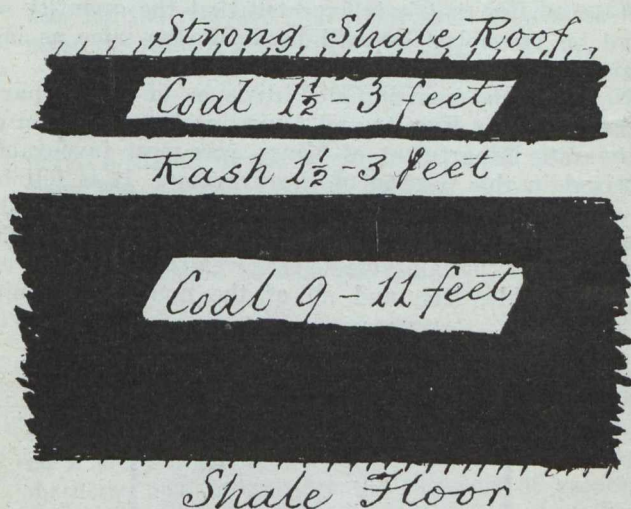 Strong Shale Roof
Coal 1½ - 3 feet
Rash 1½ - 3 feet
Coal 9 - 11 feet
Shale Floor